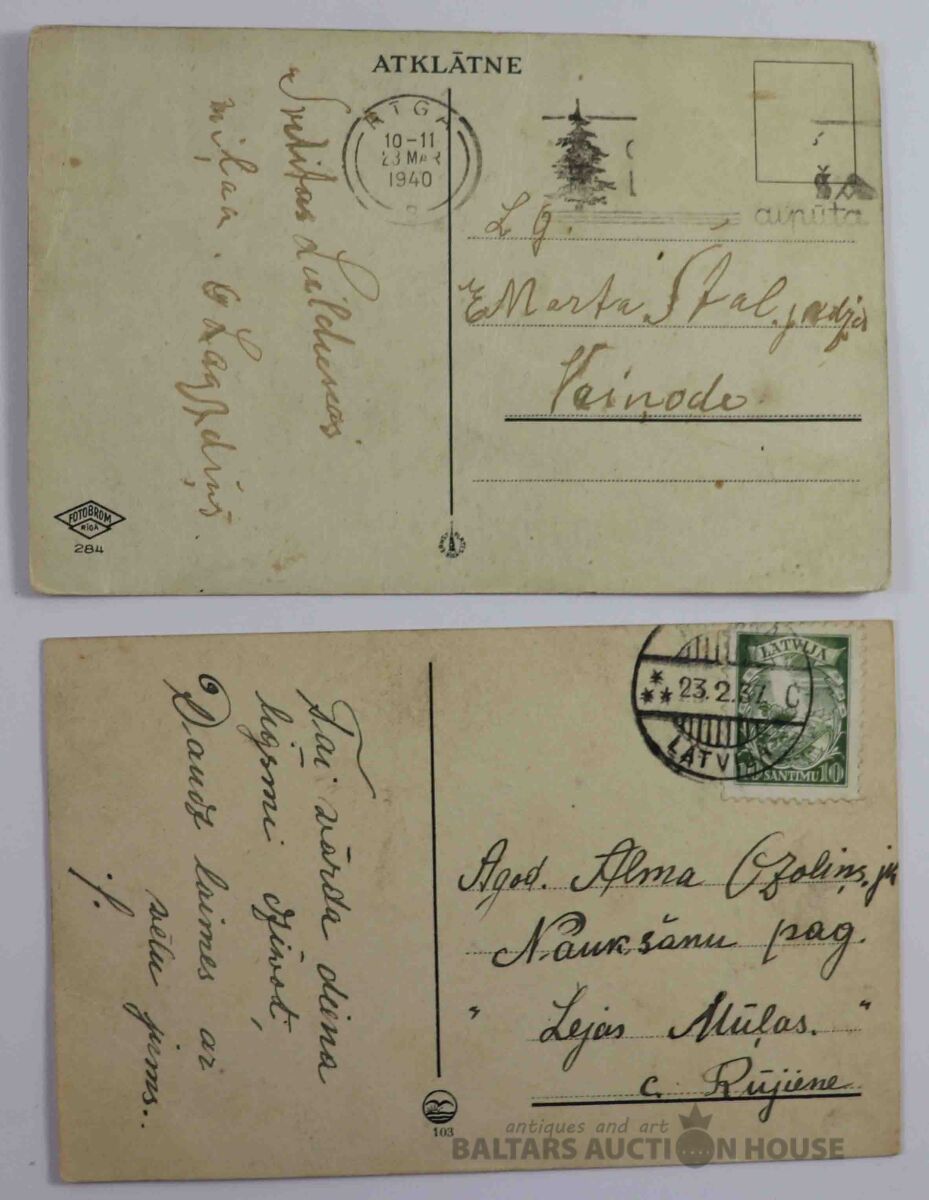 ATKLĀTNE
RĪGA
10-11
23 MAR
1940
aipūta
L. g.
Marta Stal. jndzi
Vaiņode.
Svētītas Lieldienas
miļaa. O Lagzdiņš
FOTOBROM
RIGA
284
LATVIJA
23.2.37 C
LATVIJA
10 SANTIMU 10
Tai vārda diena
līgsmi dzīvot,
O Daudz laimes ar
vēlu jums..
Agod. Alma Ozoliņ. jk
Naukšānu pag.
" Lejas Mūļas. "
c. Rūjiene
103
antiques and art
BALTARS AUCTION HOUSE